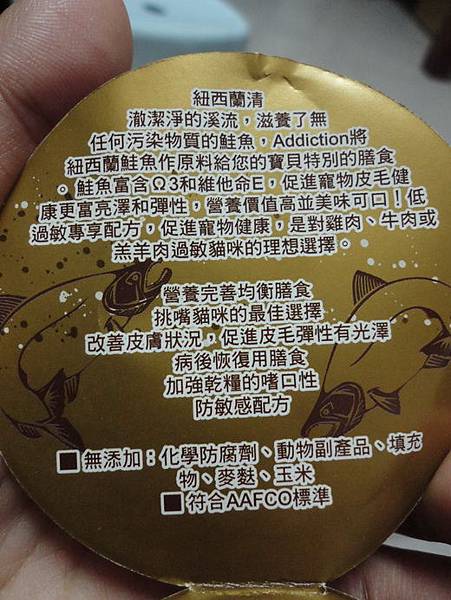 紐西蘭清
澈潔淨的溪流，滋養了無
任何污染物質的鮭魚，Addiction將
紐西蘭鮭魚作原料給您的寶貝特別的膳食
。鮭魚富含Ω3和維他命E，促進寵物皮毛健
康更富亮澤和彈性，營養價值高並美味可口！低
過敏專享配方，促進寵物健康，是對雞肉、牛肉或
羔羊肉過敏貓咪的理想選擇。
營養完善均衡膳食
挑嘴貓咪的最佳選擇
改善皮膚狀況，促進皮毛彈性有光澤
病後恢復用膳食
加強乾糧的嗜口性
防敏感配方
■無添加：化學防腐劑、動物副產品、填充
物、麥麩、玉米
■符合AAFCO標準